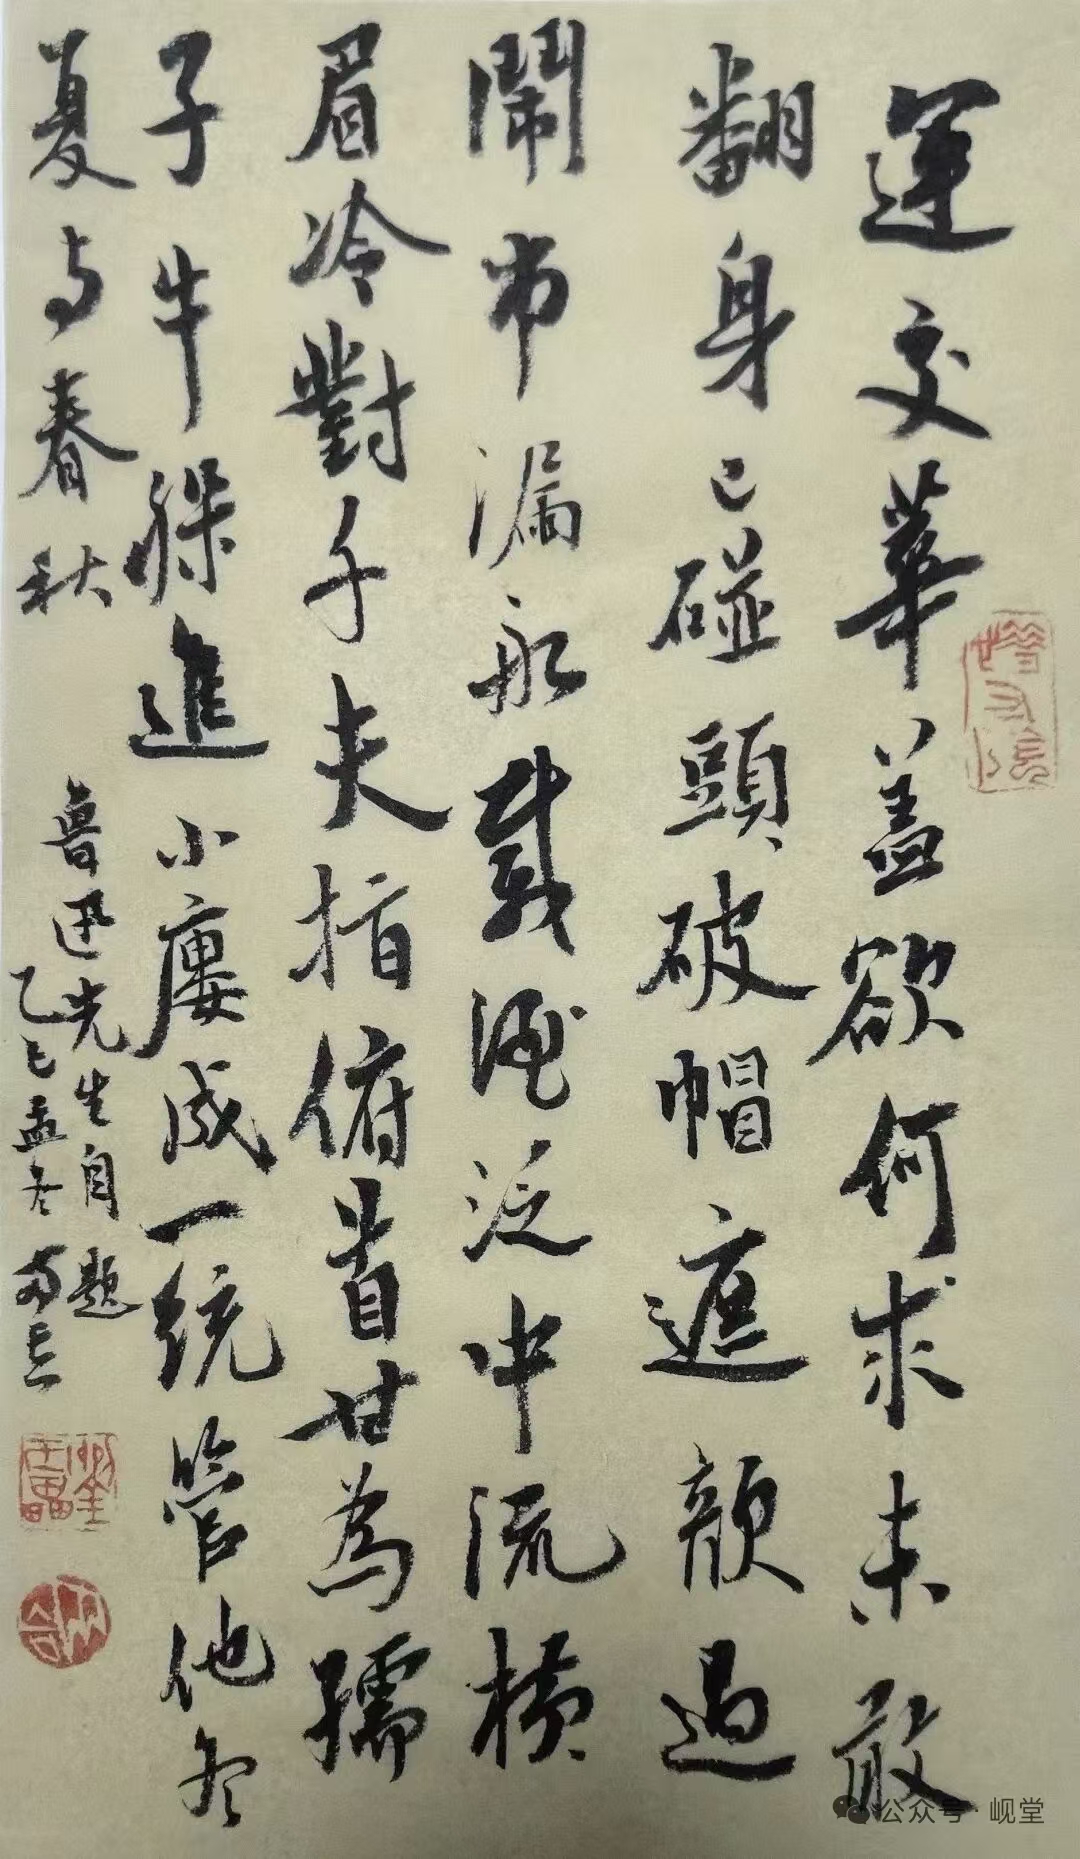 運交華盖欲何求未敢
翻身已碰頭破帽遮顔過
鬧市漏船載酒泛中流横
眉冷對千夫指俯首甘為孺
子牛躲進小廔成一統管他冬
夏与春秋
魯迅先生自题
乙巳孟冬
公众号·岘堂